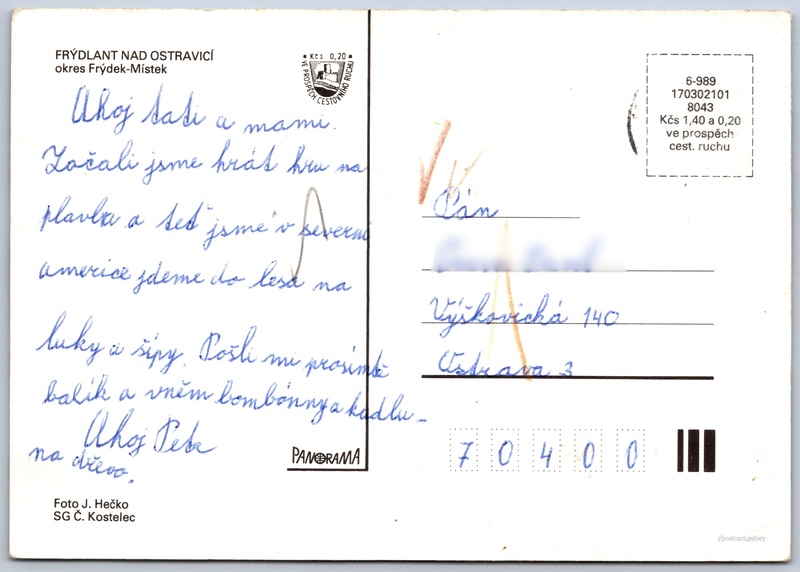 FRÝDLANT NAD OSTRAVICÍ
okres Frýdek-Místek
Kčs 0,20
VE PROSPĚCH CESTOVNÍHO RUCHU
Ahoj tati a mami.
Začali jsme hrát hru na
plavba a teď jsme v severní
americe jdeme do lesa na
luky a šípy. Pošli mi prosímtě
balík a vněm bombónny a kadlu-
na dřevo.
Ahoj Petr
PANORAMA
Foto J. Hečko
SG Č. Kostelec
6-989
170302101
8043
Kčs 1,40 a 0,20
ve prospěch
cest. ruchu
Pán
Výškovická 140
Ostrava 3
70400
//postcard.gallery